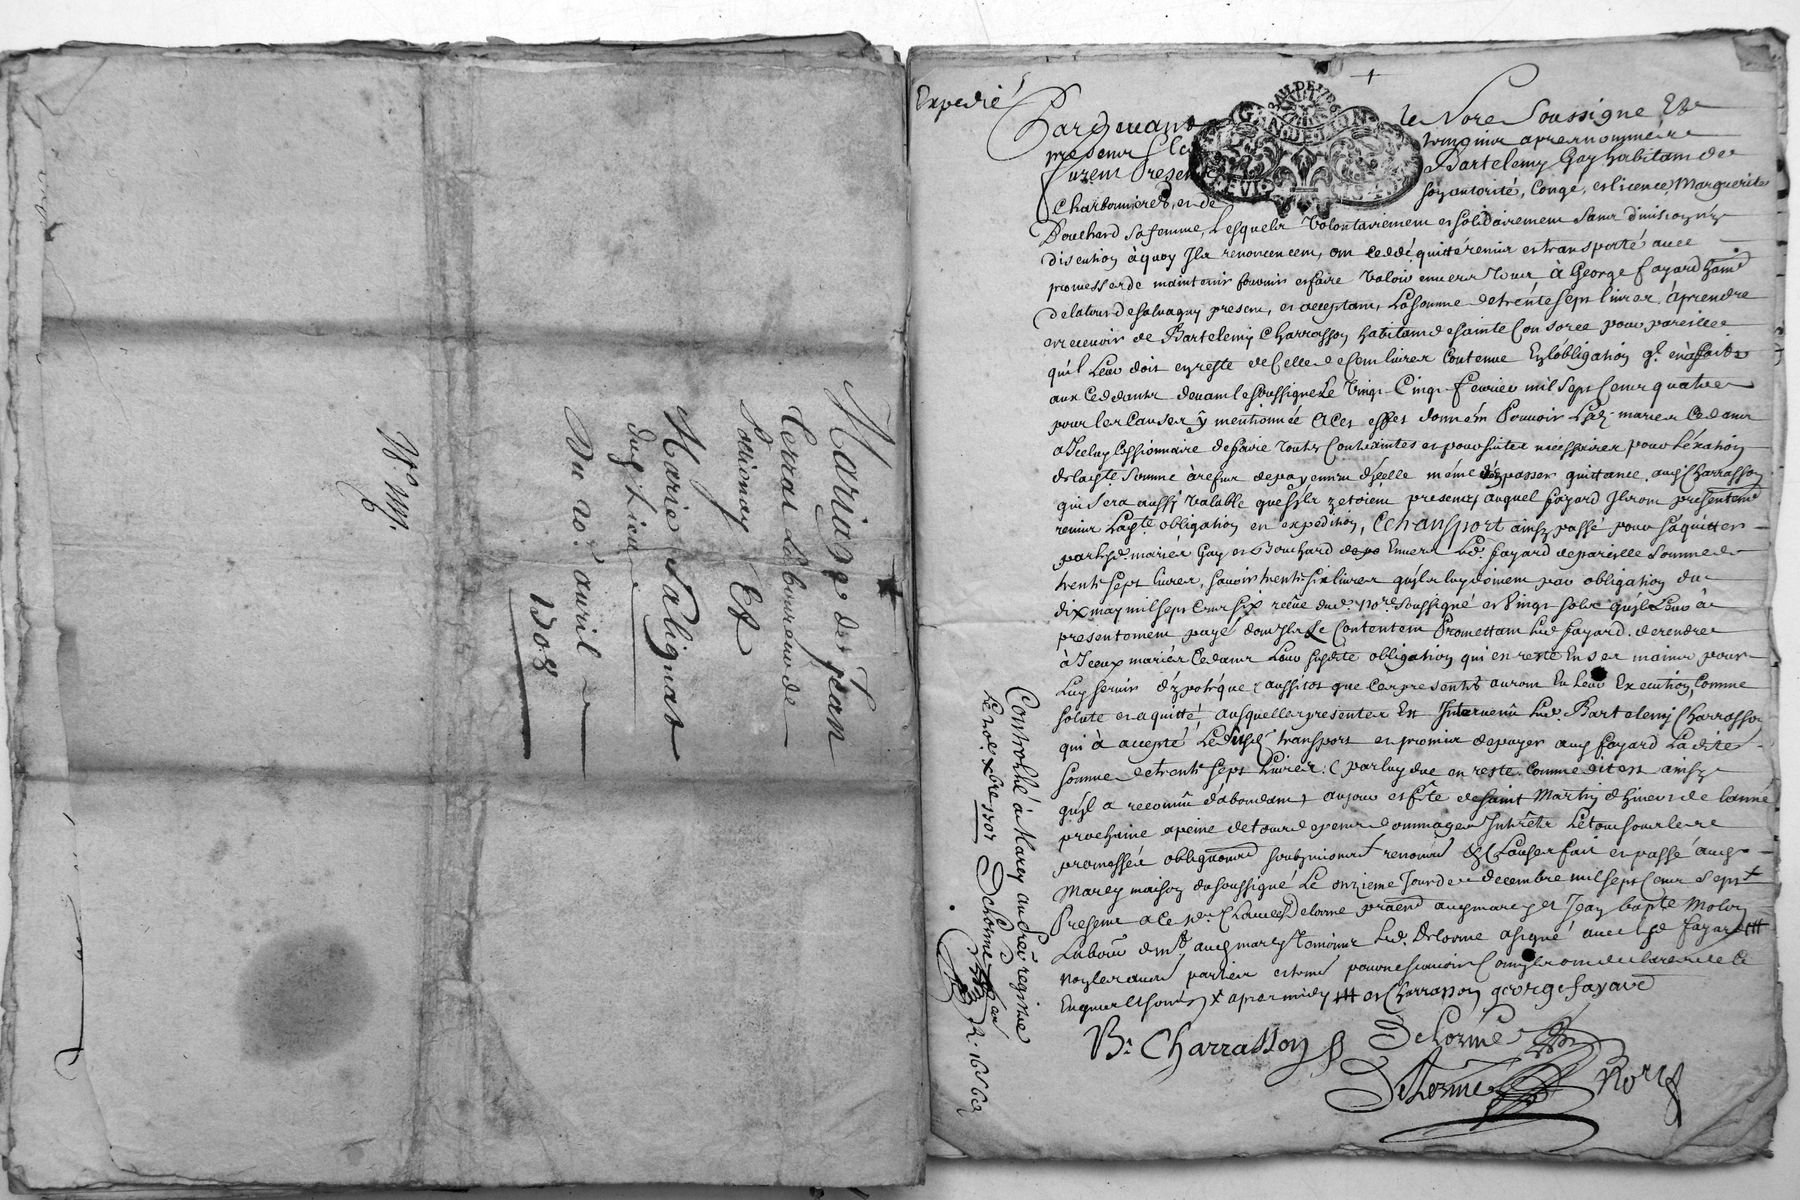 Mariage de Jean
Cerras Laboureur de
Poüionay Et
Marie Salignat
dud Lieu
Du 20e auril
1708
Expedié
Pardeuant le No.re Soussigné Et
presens tesmoins apres nommés
furent Presens Bartelemy Gay habitant de
Charbonnieres, et de soy autorité, Congé, et licence, Marguerite
Bouchard sa femme, Lesquels Volontairement et solidairement sans diuision ny
discution à quoy Ils renoncent, ont ceddé quitté remis et transporté auec
promesse de maintenir fournir et faire Valoir enuers tous à George fayard hant
de latour de saluagny present, et acceptant, La somme de trente sept liures, à prendre
et receuoir de Bartelemy Charrasson habitant de sainte Consorce pour pareille
qu'il Leur doit en reste de Celle de Cent liures Contenue En l'obligation qu'il en a faite
aux Ceddants deuant le soussigné Le Vingt Cinq feurier mil sept Cent quatre
pour les Causes y mentionnée A Ces effet donnent Pouuoir Lesd. mariez Cedants
a Iceluy Cessionnaire de faire Toutes Contraintes et poursuites necessaires pour L'exation
de ladite Somme à refus de payement d'Icelle même d'en passer quittance aud Charrasson
qui Sera aussy Valable que s'ils y etoient presents, auquel fayard Ils ont presentement
remis Ladte obligation en expedition, Ce transport ainsy passé pour s'aquitter
par lesd mariés Gay et Bouchard Enuers Led. fayard de pareille Somme de
trente sept liures, sauoir trente six liures qu'ils luy doiuent par obligation du
dix may mil sept Cent six recüe dud. No.re Soussigné et Vingt sols qu'il Leur a
presentement payé dont Ils Se Contentent Promettant Led fayard de rendre
à Iceux mariés Cedants Leur susdte obligation qui en reste En ses mains pour
Luy seruir d'ypotèque aussitot que Ces presentes auront Eu Leur Execution, Comme
solute et aquitté, ausquelles presentes Est Interuenû Led. Bartelemy Charrasson
qui à accepté Le susd transport et promis de payer aud fayard La dite
somme de trente sept liures par luy due en reste Comme dit est ainsy
qu'il a reconnû d'abondant, au jour et fête de saint Martin d'hiuers de lanné
prochaine a peine de tous depens dommages Interêts Le tout sous leurs
promesses obligations soubmissions renonciations & Clauses fait et passé aud
Marcy maison du soussigné Le onzieme Jour de decembre mil sept Cent Sept
Present a Ce sr Claude Delorme aud marcy et Jean bapte Molon
Labour dmt aud marcy temoins Led. Delorme a signé auec led fayard
Non les autres parties et temoins pour ne scauoir Comme Ils ont declaré de Ce
Enquis et sommés X apres midy et Charrasson george fayard
B. Charrasson Delorme
Delorme Nore
Controllé à Marcy au 3e registre
Le 20e xbre 1707 Delorme
R. 16s 6d